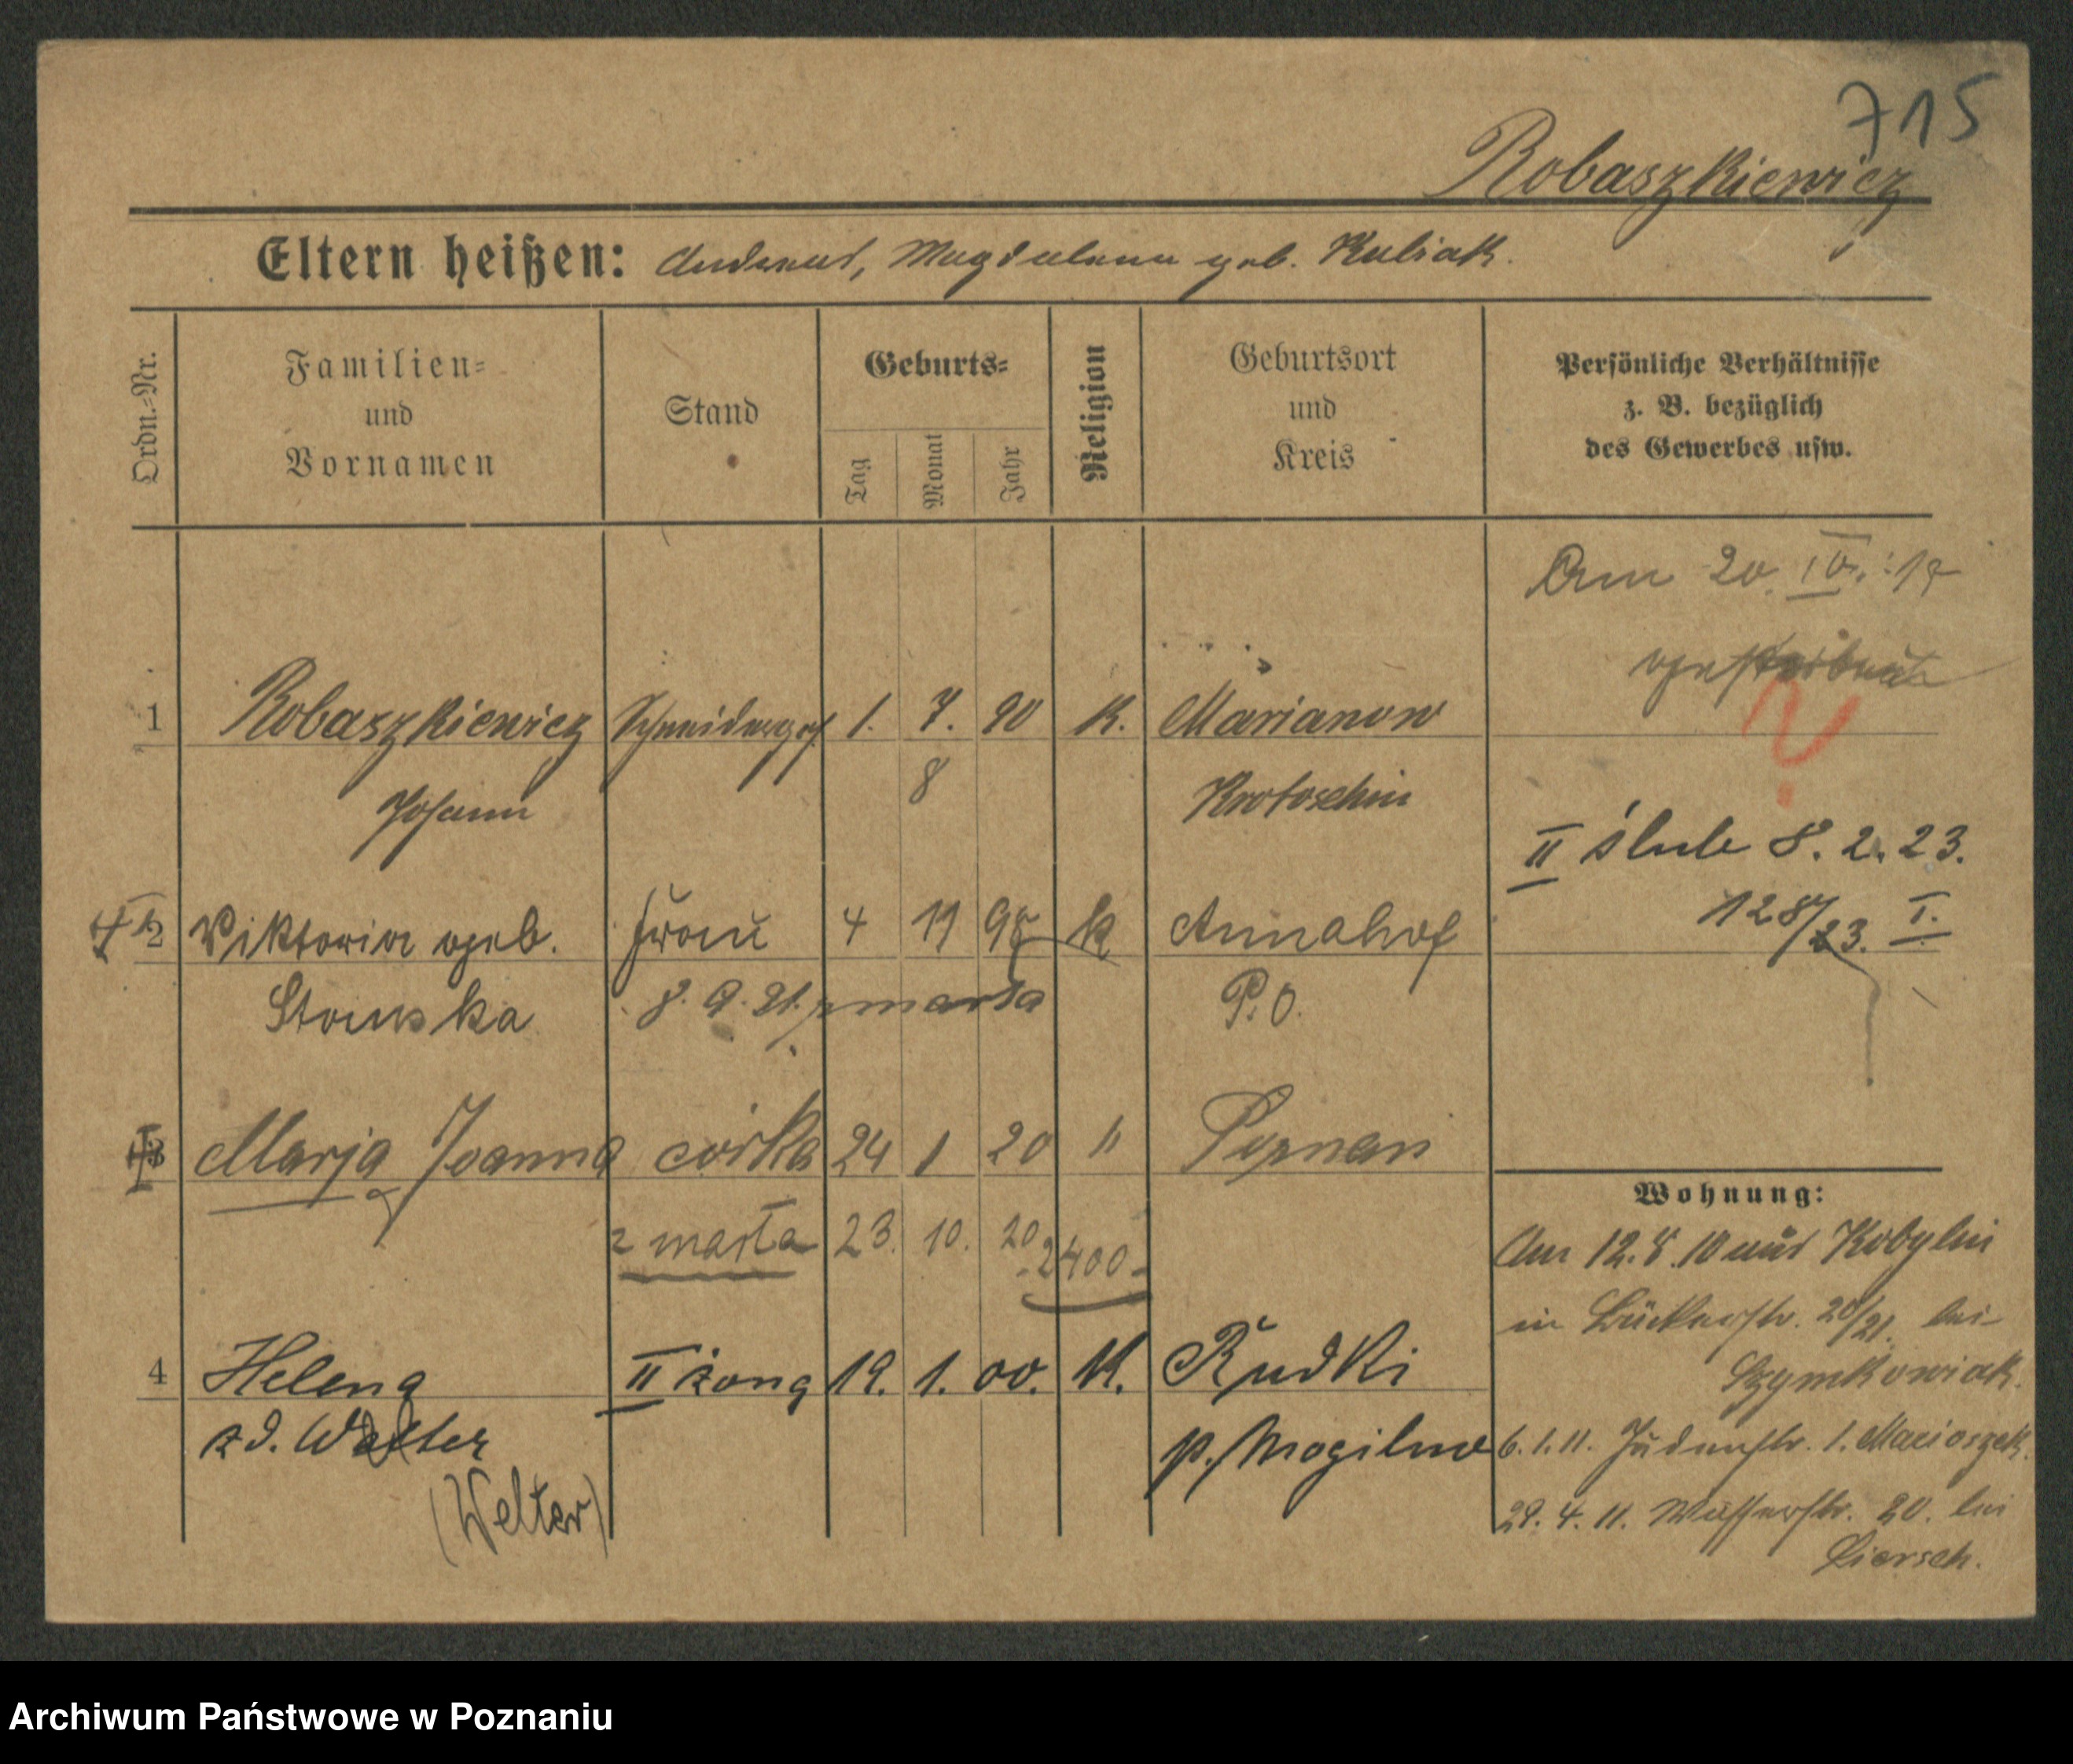 715
Robaszkiewicz
Eltern heißen: Andreas, Magdalena geb. Kubiak.
Ordn.-Nr.
Familien-
und
Vornamen
Stand
Geburts-
Tag
Monat
Jahr
Religion
Geburtsort
und
Kreis
Persönliche Verhältnisse
z. B. bezüglich
des Gewerbes usw.
Am 20. :19
gestorben
?
1 Robaszkiewicz Schneiderges. 1. 7. 90 K. Marianow
Johann 8 Krotoschin
II ślub 8. 2. 23.
128/23. I.
† 2 Viktoria geb. Frau 4 11 98 k Annahof
8. 9. 21. zmarła P.O.
3 Marja Joanna córka 24 1 20 " Poznań
zmarła 23. 10. 20
-2400-
4 Helena II żona 19. 1. 00. K. Rudki
zd. Walter p. Mogilno
(Welter)
Wohnung:
Am 12. 8. 10 aus Kobylin
in Bäckerstr. 20/21. bei
Szymkowiak.
6. 1. 11. Judenstr. 1. Marioszek.
29. 4. 11. Wasserstr. 20. bei
Liersch.
Archiwum Państwowe w Poznaniu